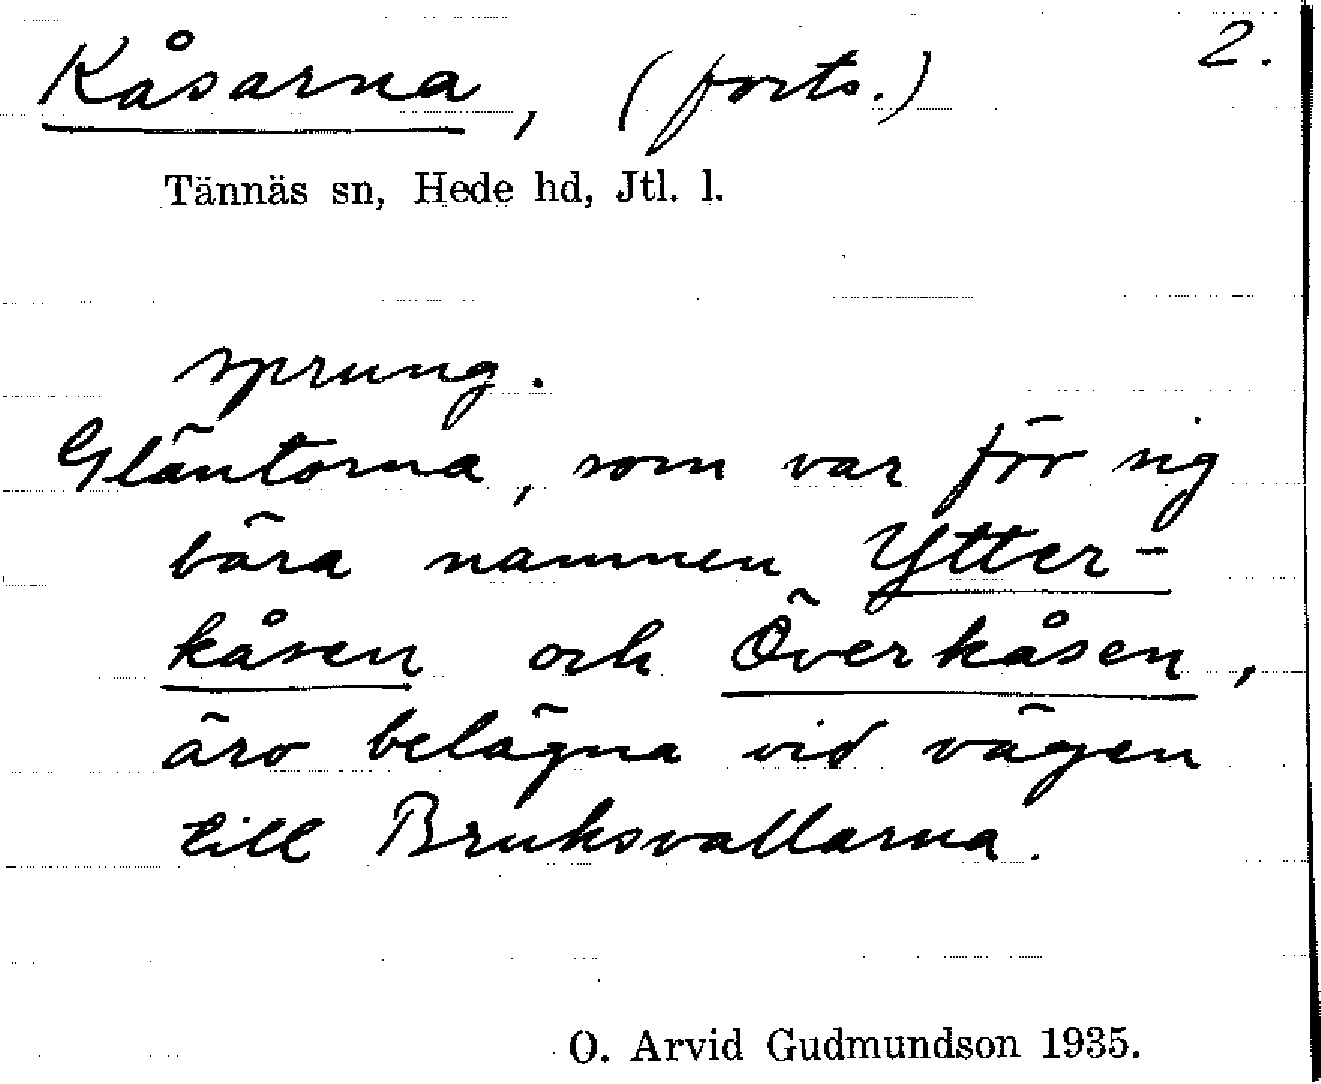 Kåsarna, (forts.) 2.
Tännäs sn, Hede hd, Jtl. l.
sprung.
Gläntorna, som var för sig
bära namnen Ytter-
kåsen och Överkåsen,
äro belägna vid vägen
till Bruksvallarna.
O. Arvid Gudmundson 1935.